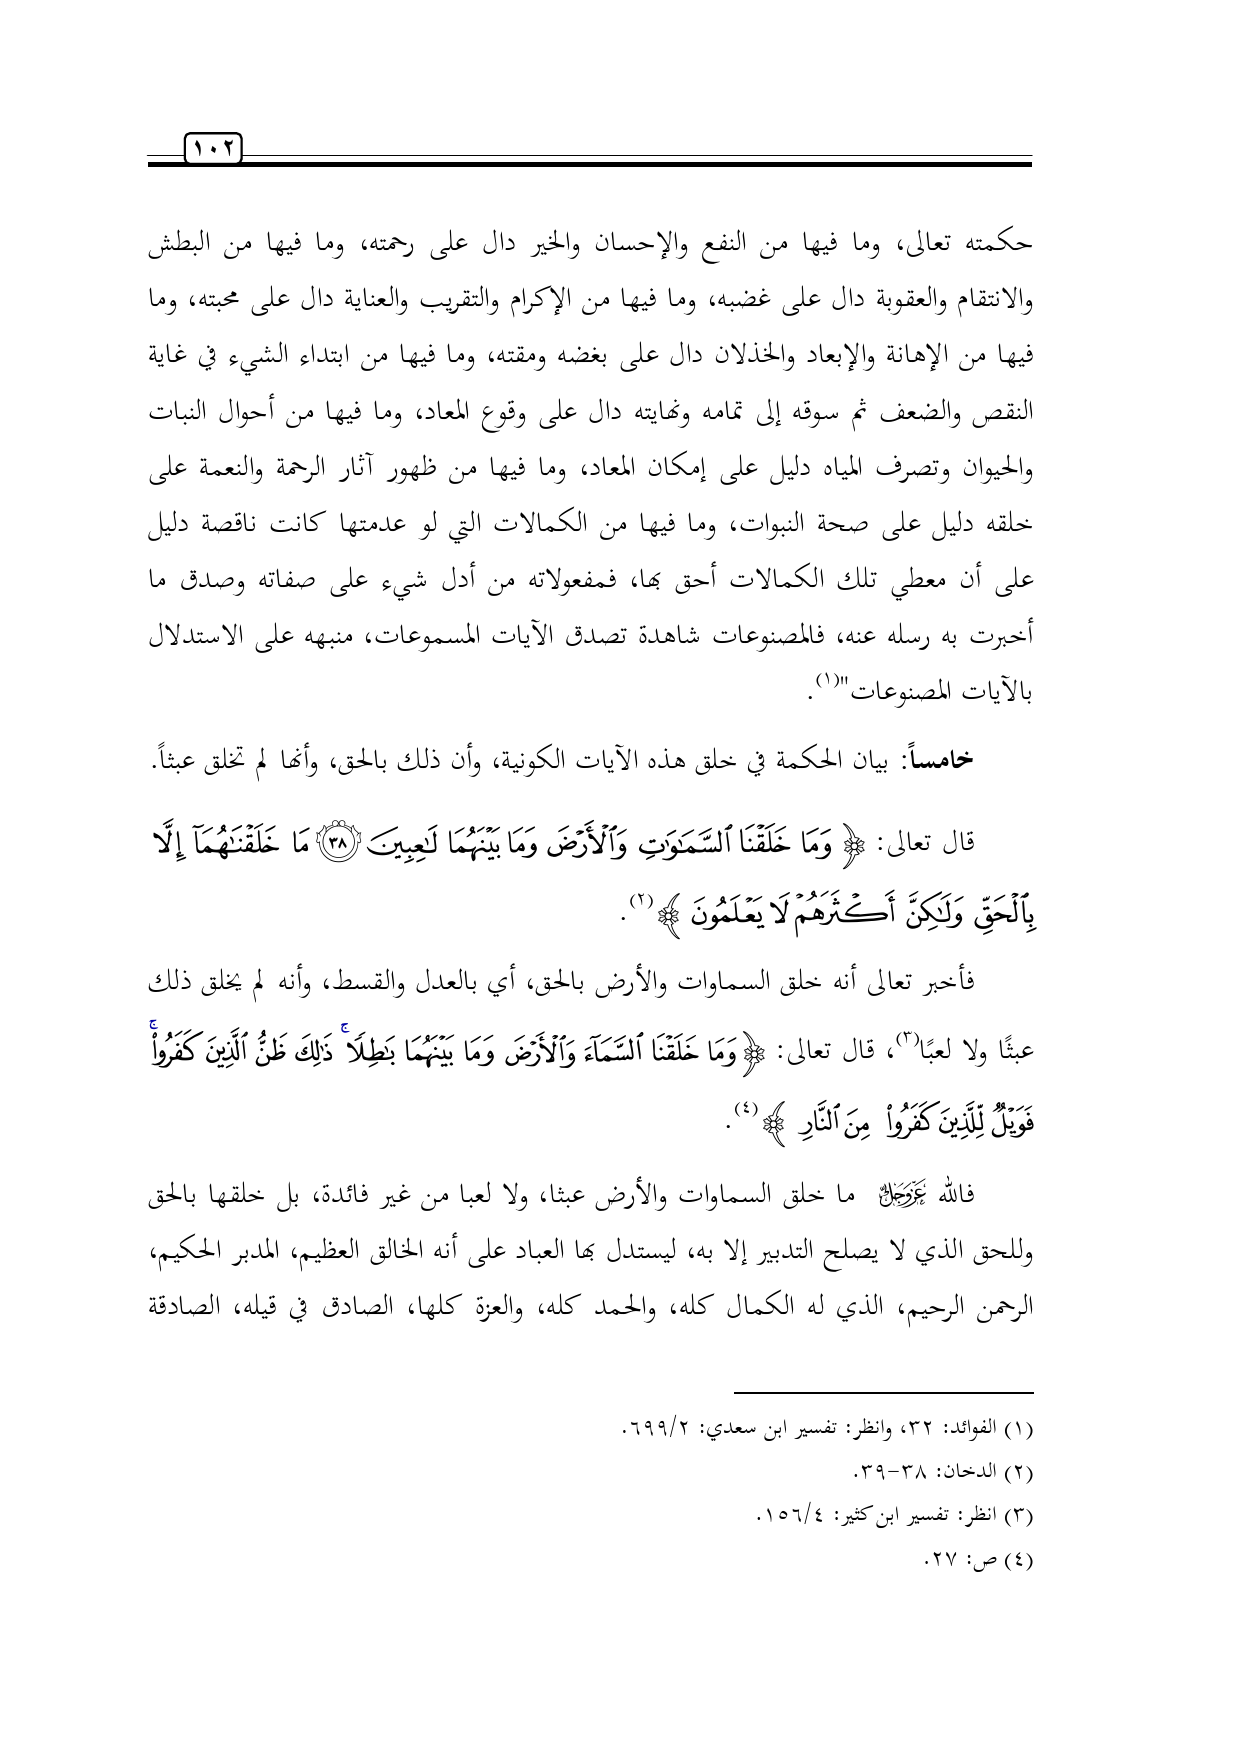 ١٠٢
حكمته تعالى، وما فيها من النفع والإحسان والخير دال على رحمته، وما فيها من البطش
والانتقام والعقوبة دال على غضبه، وما فيها من الإكرام والتقريب والعناية دال على محبته، وما
فيها من الإهانة والإبعاد والخذلان دال على بغضه ومقته، وما فيها من ابتداء الشيء في غاية
النقص والضعف ثم سوقه إلى تمامه ونهايته دال على وقوع المعاد، وما فيها من أحوال النبات
والحيوان وتصرف المياه دليل على إمكان المعاد، وما فيها من ظهور آثار الرحمة والنعمة على
خلقه دليل على صحة النبوات، وما فيها من الكمالات التي لو عدمتها كانت ناقصة دليل
على أن معطي تلك الكمالات أحق بها، فمفعولاته من أدل شيء على صفاته وصدق ما
أخبرت به رسله عنه، فالمصنوعات شاهدة تصدق الآيات المسموعات، منبهه على الاستدلال
بالآيات المصنوعات"(١).
خامساً: بيان الحكمة في خلق هذه الآيات الكونية، وأن ذلك بالحق، وأنها لم تخلق عبثاً.
قال تعالى: ﴿ وَمَا خَلَقْنَا ٱلسَّمَٰوَٰتِ وَٱلْأَرْضَ وَمَا بَيْنَهُمَا لَٰعِبِينَ ٣٨ مَا خَلَقْنَٰهُمَآ إِلَّا
بِٱلْحَقِّ وَلَٰكِنَّ أَكْثَرَهُمْ لَا يَعْلَمُونَ ﴾(٢).
فأخبر تعالى أنه خلق السماوات والأرض بالحق، أي بالعدل والقسط، وأنه لم يخلق ذلك
عبثًا ولا لعبًا(٣)، قال تعالى: ﴿ وَمَا خَلَقْنَا ٱلسَّمَآءَ وَٱلْأَرْضَ وَمَا بَيْنَهُمَا بَٰطِلًا ۚ ذَٰلِكَ ظَنُّ ٱلَّذِينَ كَفَرُوا۟ ۚ
فَوَيْلٌ لِّلَّذِينَ كَفَرُوا۟ مِنَ ٱلنَّارِ ﴾(٤).
فالله عَزَّوَجَلَّ ما خلق السماوات والأرض عبثا، ولا لعبا من غير فائدة، بل خلقها بالحق
وللحق الذي لا يصلح التدبير إلا به، ليستدل بها العباد على أنه الخالق العظيم، المدبر الحكيم،
الرحمن الرحيم، الذي له الكمال كله، والحمد كله، والعزة كلها، الصادق في قيله، الصادقة
(١) الفوائد: ٣٢، وانظر: تفسير ابن سعدي: ٦٩٩/٢.
(٢) الدخان: ٣٨-٣٩.
(٣) انظر: تفسير ابن كثير: ١٥٦/٤.
(٤) ص: ٢٧.